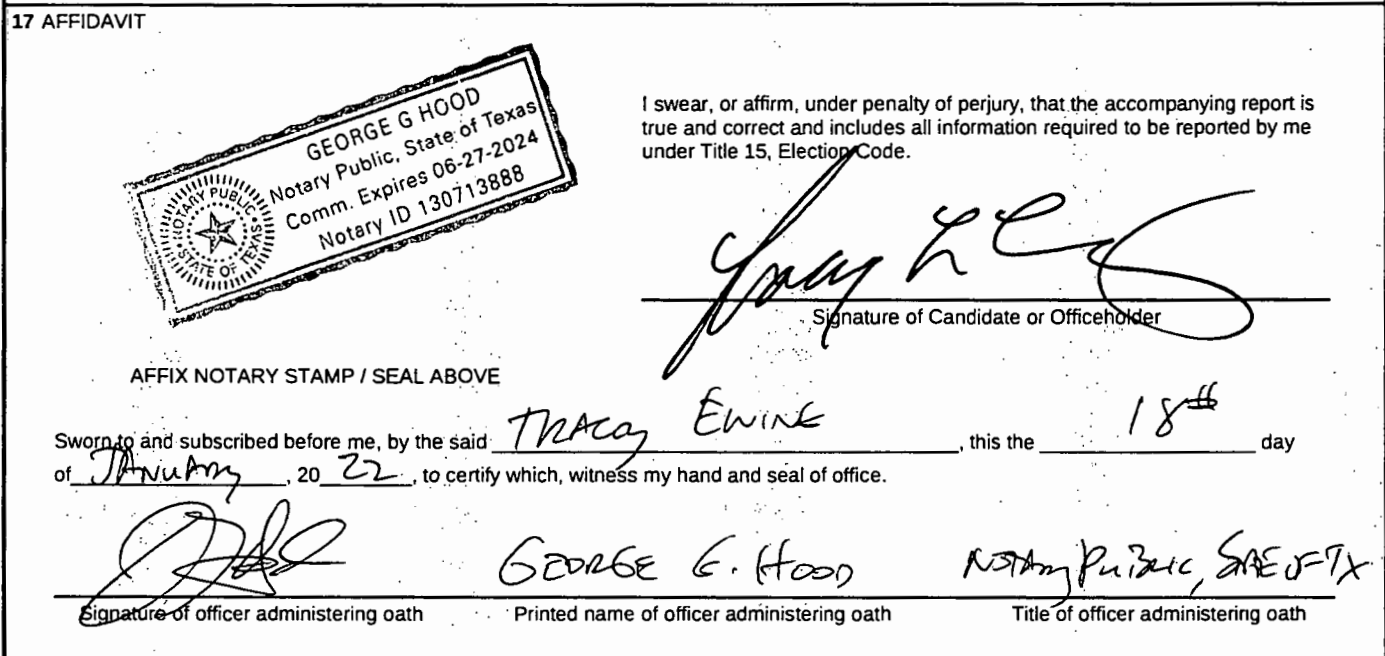 17 AFFIDAVIT
GEORGE G HOOD
Notary Public, State of Texas
Comm. Expires 06-27-2024
Notary ID 130713888
NOTARY PUBLIC
STATE OF TEXAS
I swear, or affirm, under penalty of perjury, that the accompanying report is
true and correct and includes all information required to be reported by me
under Title 15, Election Code.
Tracy L
Signature of Candidate or Officeholder
AFFIX NOTARY STAMP / SEAL ABOVE
Sworn to and subscribed before me, by the said TRACY EWING, this the 18th day
of JANUARY, 20 22, to certify which, witness my hand and seal of office.
GEORGE G. HOOD NOTARY PUBLIC, STATE OF TX
Signature of officer administering oath Printed name of officer administering oath Title of officer administering oath